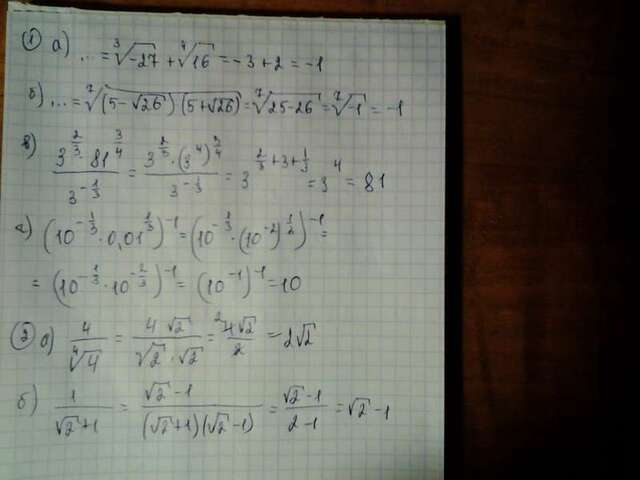 ① а) ... = ∛-27 + ∜16 = -3 + 2 = -1
б) ... = ⁷√(5-√26)(5+√26) = ⁷√25-26 = ⁷√-1 = -1
в) (3^(2/3) · 81^(3/4)) / 3^(-1/3) = (3^(2/3) · (3^4)^(3/4)) / 3^(-1/3) = 3^(2/3+3+1/3) = 3^4 = 81
г) (10^(-1/3) · 0,01^(1/3))^(-1) = (10^(-1/3) · (10^(-2))^(1/2))^(-1) =
= (10^(-1/3) · 10^(-2/3))^(-1) = (10^(-1))^(-1) = 10
② а) 4 / ∜4 = 4√2 / (√2 · √2) = 4√2 / 2 = 2√2
б) 1 / (√2+1) = (√2-1) / ((√2+1)(√2-1)) = (√2-1) / (2-1) = √2-1